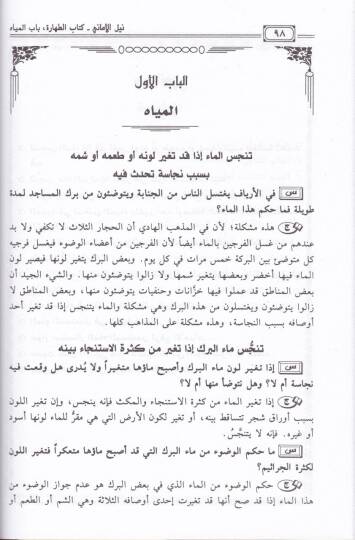 ٩٨
نيل الأماني - كتاب الطهارة، باب المياه
الباب الأول
المياه
تنجس الماء إذا قد تغير لونه أو طعمه أو شمه
بسبب نجاسة تحدث فيه
س في الأرياف يغتسل الناس من الجنابة ويتوضئون من برك المساجد لمدة
طويلة فما حكم هذا الماء؟
ج هذه مشكلة؛ لأن في المذهب الهادي أن الحجار الثلاث لا تكفي ولا بد
عندهم من غسل الفرجين بالماء أيضاً لأن الفرجين من أعضاء الوضوء فيغسل فرجيه
كل متوضئ بين البركة خمس مرات في كل يوم. وبعض البرك يتغير لونها فيصير لون
الماء فيها أخضر وبعضها يتغير شمها ولا زالوا يتوضئون منها. والشيء الجيد أن
بعض المناطق قد عملوا فيها خزّانات وحنفيات يتوضئون منها، وبعض المناطق لا
زالوا يتوضئون ويغتسلون من هذه البرك وهي مشكلة والماء يتنجس إذا قد تغير أحد
أوصافه بسبب النجاسة، وهذه مشكلة على المذاهب كلها.
تنجُّس ماء البرك إذا تغير من كثرة الاستنجاء بينه
س إذا تغير لون ماء البرك وأصبح ماؤها متغيراً ولا يُدرى هل وقعت فيه
نجاسة أم لا؟ وهل نتوضأ منها أم لا؟
ج إذا تغير الماء من كثرة الاستنجاء والمكث فإنه ينجس، وإن تغير اللون
بسبب أوراق شجر تتساقط بينه، أو تغير لكون الأرض التي هي مقرٌّ للماء لونها أسود
أو غيره. فإنه لا يتنجَّسُ.
س ما حكم الوضوء من ماء البرك التي قد أصبح ماؤها متعكراً فتغير اللون
لكثرة الجراثيم؟
ج حكم الوضوء من الماء الذي في بعض البرك هو عدم جواز الوضوء من
هذا الماء إذا قد صح أنها قد تغيرت إحدى أوصافه الثلاثة وهي الشم أو الطعم أو